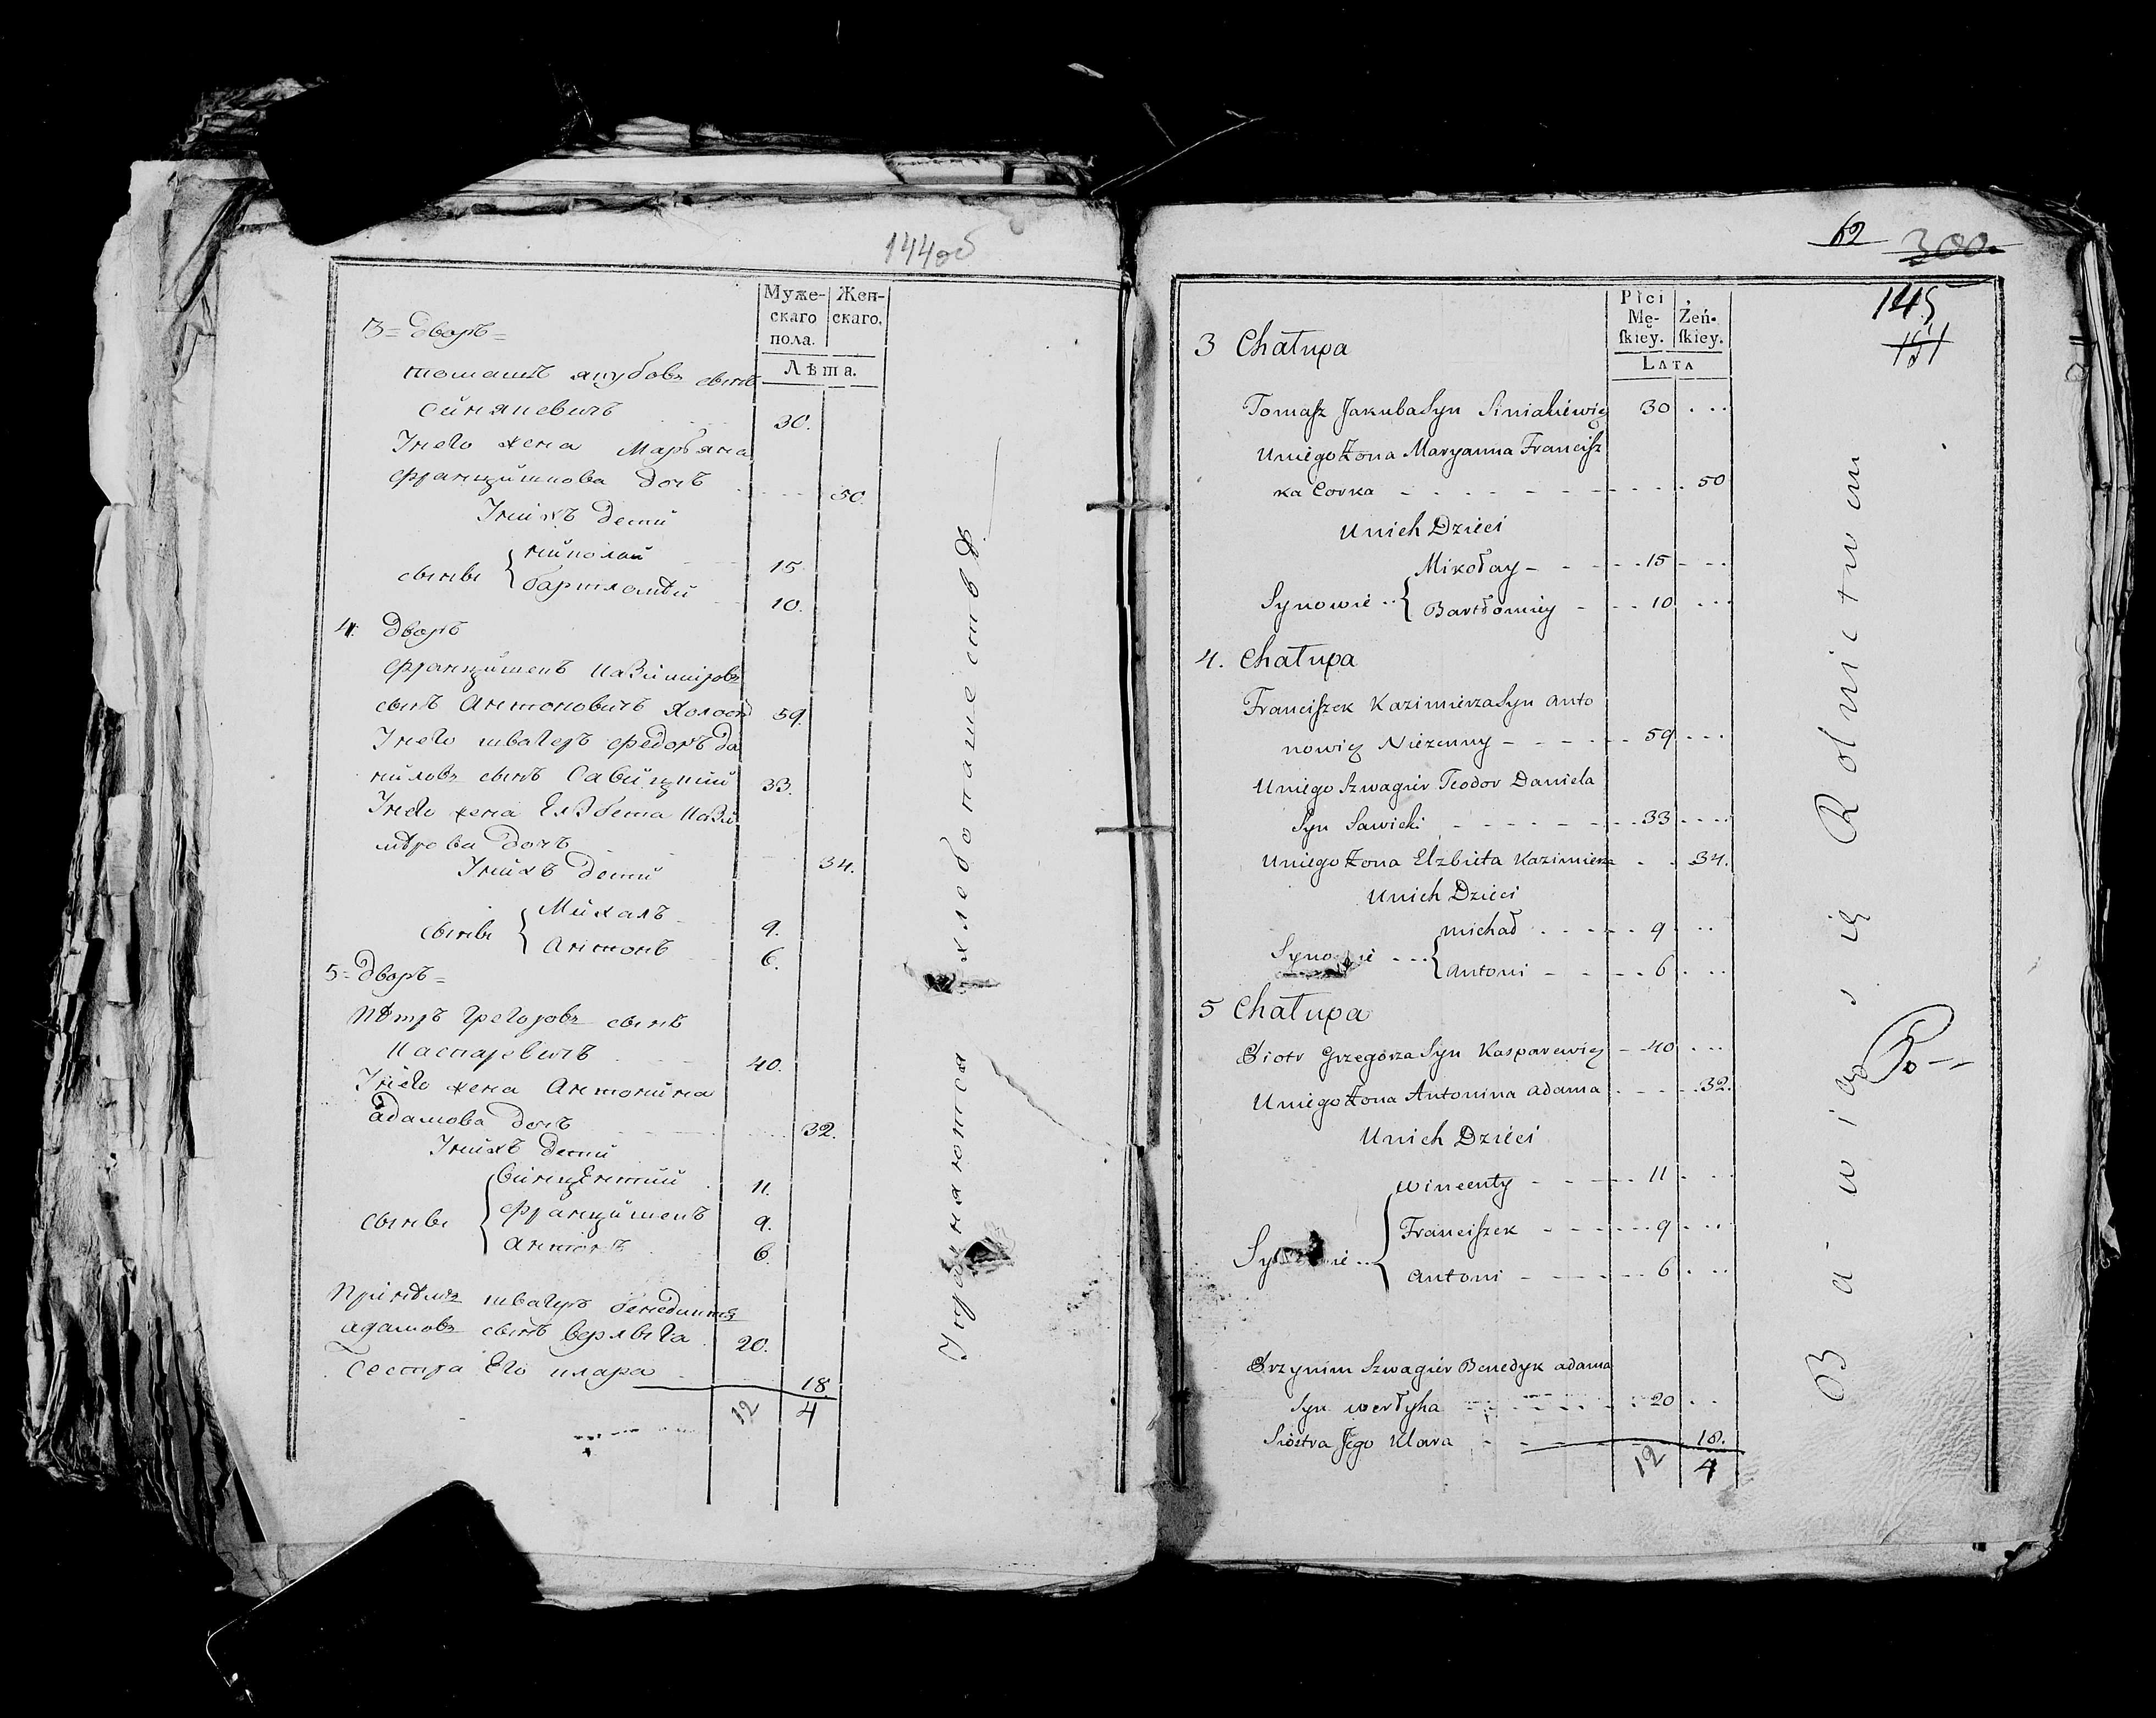 144об
Муже-
скаго
пола.
Жен-
скаго.
Лѣта.
3= Дворъ=
томашъ якубовъ сынъ
Синякевичъ 30.
Унего жена Марьяна
францишкова дочъ 50.
Унихъ дети
сынвы { николай 15
бартломѣй 10.
4. Дворъ
францишекъ казимировъ
сынъ Антоновичъ холост 59.
Унего швагеръ федоръ да
ниловъ сынъ Савицкий 33.
Унего жена Елзбета кази
мѣрова дочъ 34.
Унихъ дети
сынвы { Михалъ 9.
Антонъ 6.
5= Дворъ=
Пѣтръ Грегоровъ сынъ
каспаревичъ 40.
Унего жена Антонина
адамова дочъ 32.
Унихъ дети
сынвы { винцентий 11.
францишекъ 9.
антонъ 6.
Принѣмъ швагеръ бенедиктъ
адамовъ сынъ верлыга 20.
сестра Его клара 18
12 4
Упражняются хлебопашествѣ
62 300.
145
151
Płci
Mę-
skiey.
Żeń-
skiey.
Lata
3 Chałupa
Tomasz Jakuba Syn Siniakiewicz 30
Uniego Żona Maryanna Francisz
ka Corka 50
Unich Dzieci
Synowie { Mikołay 15
Bartłomiey 10
4. Chałupa
Franciszek Kazimierza Syn Anto
nowicz Nieżenny 59
Uniego Szwagier Teodor Daniela
Syn Sawicki 33
Uniego Żona Elzbieta Kazimierza 34.
Unich Dzieci
Synowie { michał 9
Antoni 6
5 Chałupa
Piotr Grzegorza Syn Kasparewicz 40
Uniego Żona Antonina Adama 32.
Unich Dzieci
Synowie { Wincenty 11
Franciszek 9
Antoni 6
Przynim Szwagier Benedyk adama
Syn werłyha 20
Siostra Jego Klara 18.
12 4
Bawią się Rolnictwem